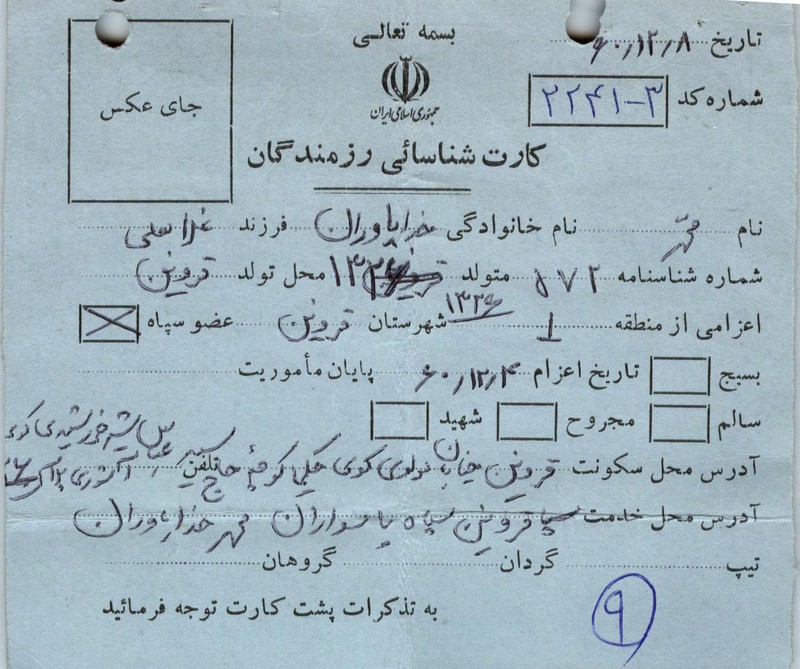 بسمه تعالی
تاریخ ۶۰/۱۲/۸
جمهوری اسلامی ایران
شماره کد ۲۲۴۱-۳
جای عکس
کارت شناسائی رزمندگان
نام نام خانوادگی خدایاوران فرزند غلامعلی
شماره شناسنامه ۸۷۲ متولد ۱۳۳۶ محل تولد قزوین
۱۳۳۶
اعزامی از منطقه ۱ شهرستان قزوین عضو سپاه
بسیج تاریخ اعزام ۶۰/۱۲/۴ پایان مأموریت
سالم مجروح شهید
آدرس محل سکونت قزوین خیابان مولوی کوی حکیم کوچه حاج سید تلفن
آدرس محل خدمت قزوین سپاه پاسداران خدایاوران
تیپ گردان گروهان
به تذکرات پشت کارت توجه فرمائید
۹